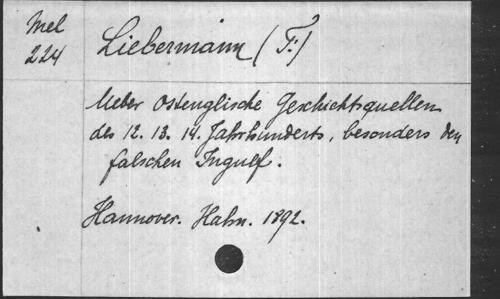 Mel
224
Liebermann (F.)
Ueber Ostenglische Geschichtsquellen
des 12. 13. 14. Jahrhunderts, besonders den
falschen Ingulf.
Hannover. Hahn. 1892.